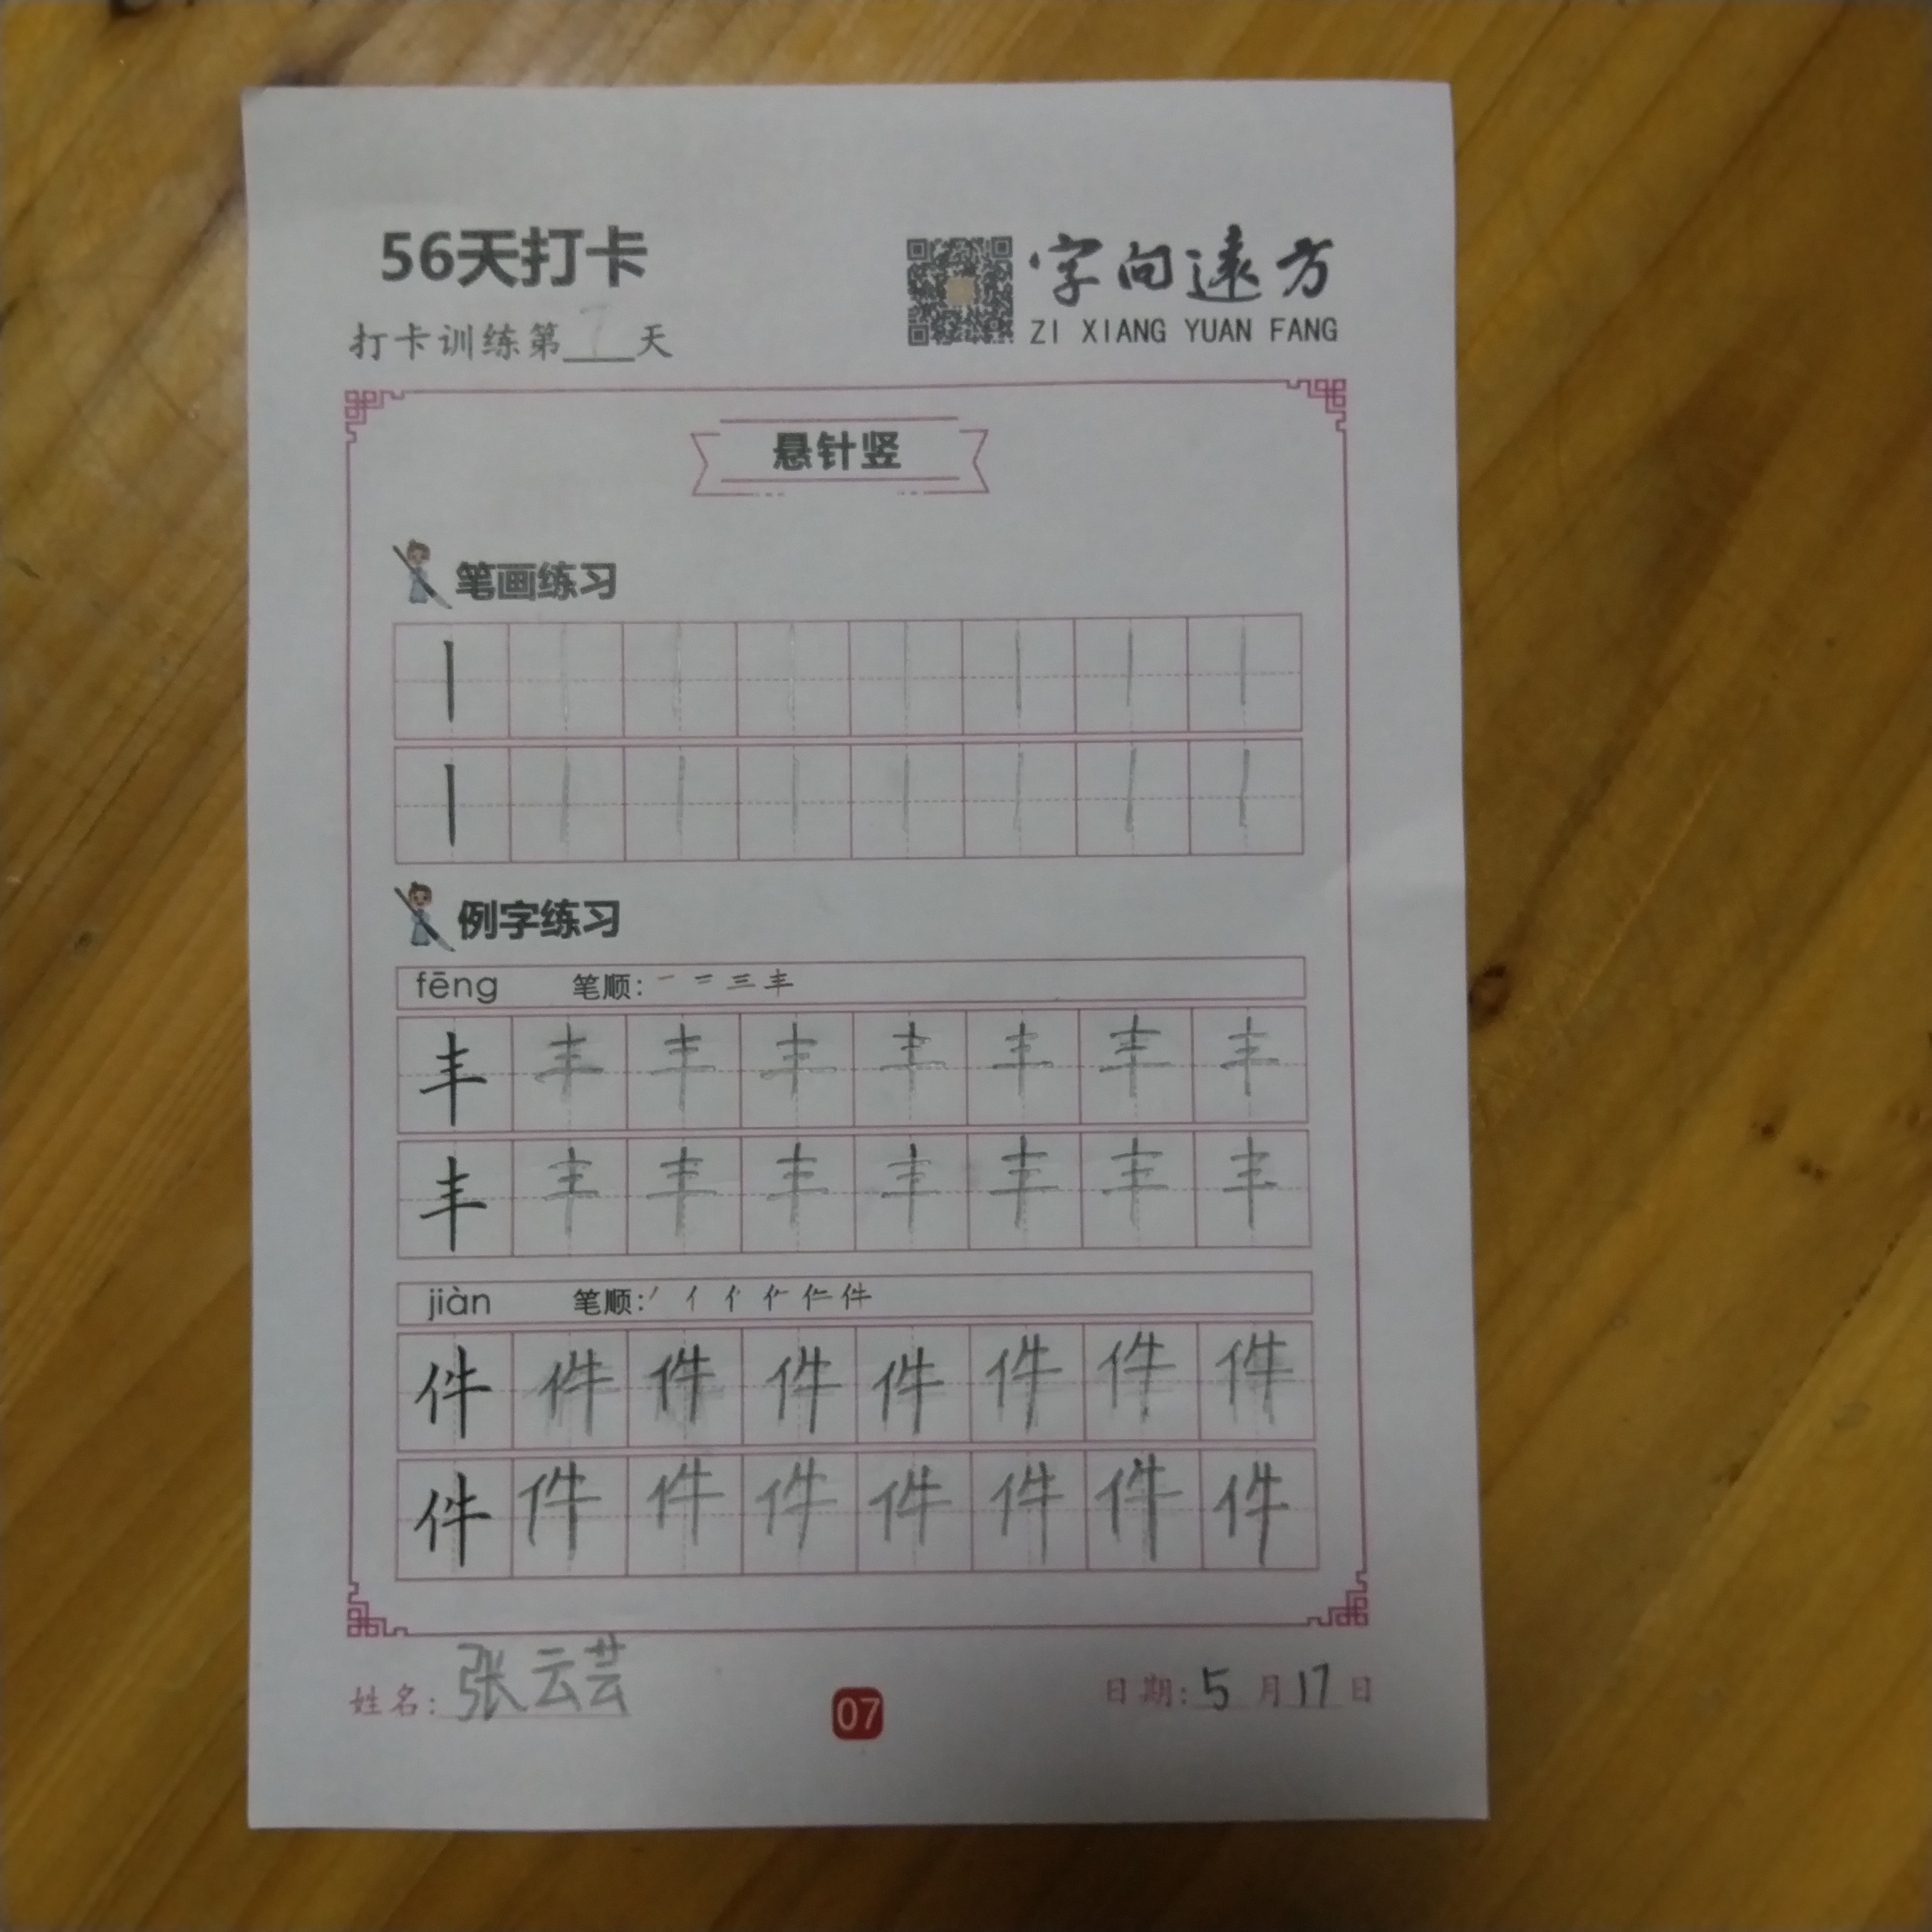 56天打卡
字向遠方
打卡训练第7天
ZI XIANG YUAN FANG
悬针竖
笔画练习
丨 丨 丨 丨 丨 丨 丨 丨
丨 丨 丨 丨 丨 丨 丨 丨
例字练习
fēng 笔顺: 一 二 三 丰
丰 丰 丰 丰 丰 丰 丰 丰
丰 丰 丰 丰 丰 丰 丰 丰
jiàn 笔顺: 丿 亻 件
件 件 件 件 件 件 件 件
件 件 件 件 件 件 件 件
姓名: 张云芸
07
日期: 5 月 17 日